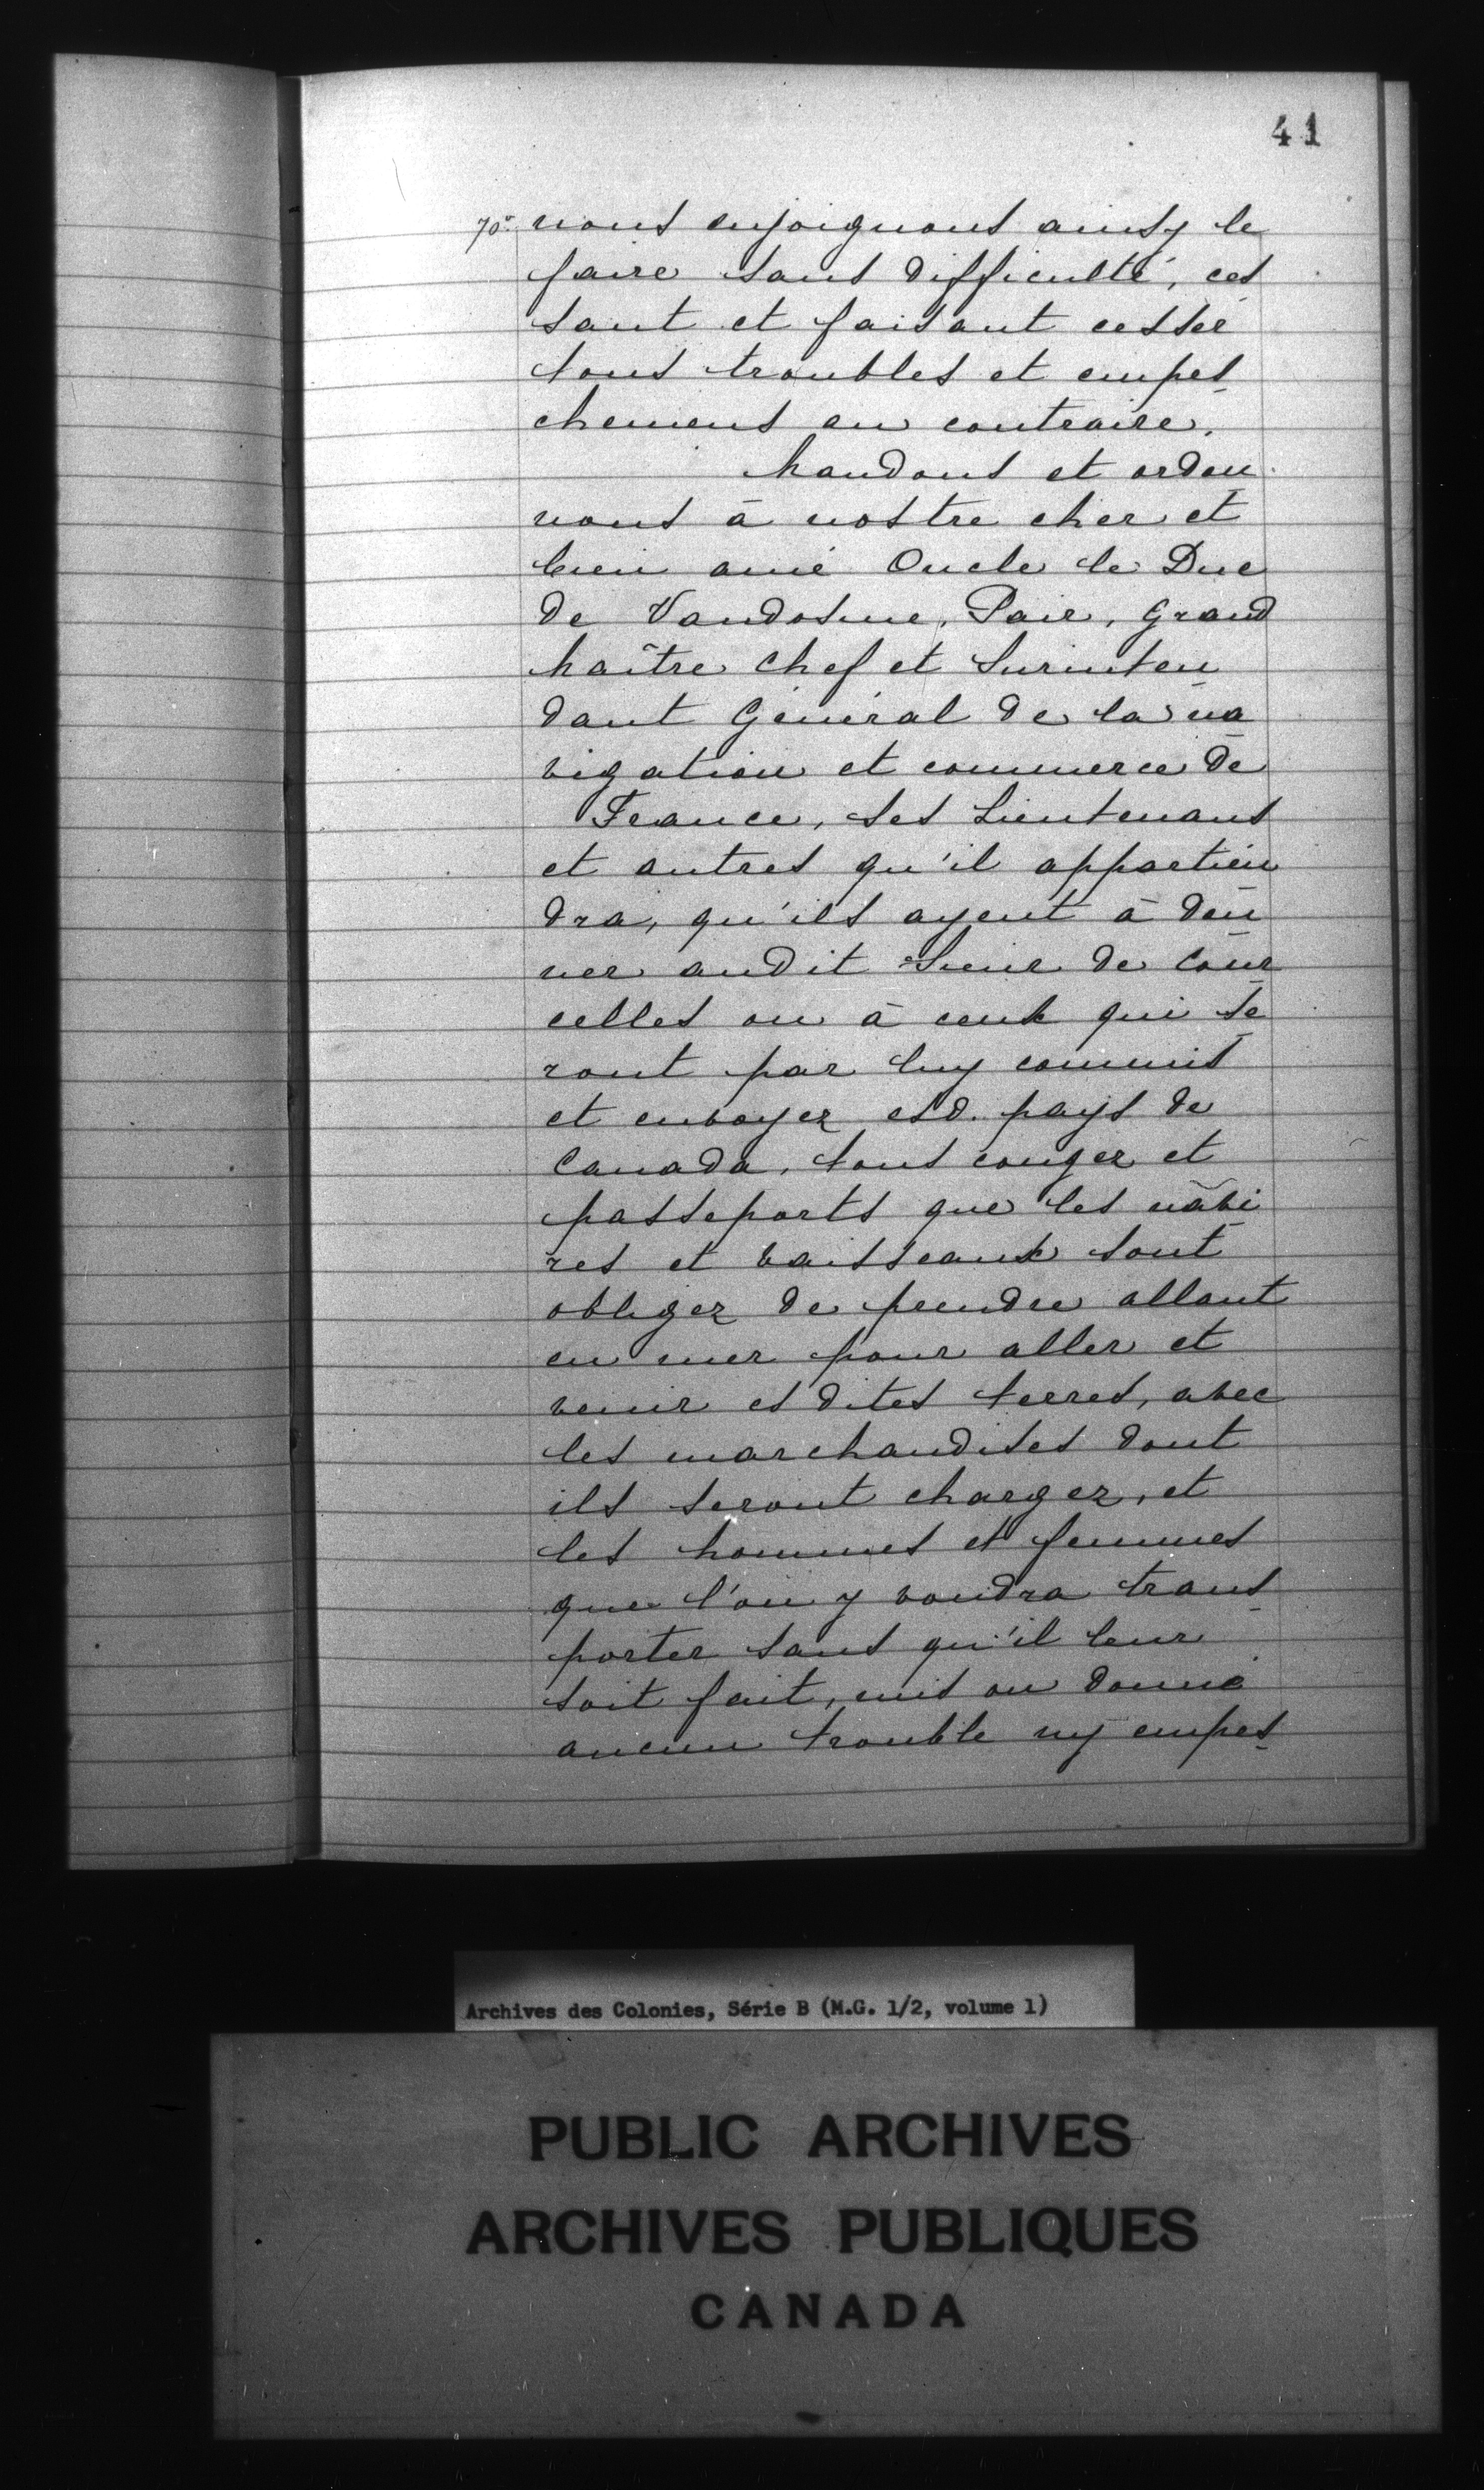 41
70 nous enjoignons ainsy le
faire sans difficulté, ces
sant et faisant cesser
tous troubles et empes
chemens au contraire.
Mandons et ordon
nons à nostre cher et
bien amé Oncle le Duc
de Vandosme, Pair, Grand
Maître Chef et Surinten
dant Général de la na
vigation et commerce de
France, ses Lieutenans
et autres qu'il appartien
dra, qu'ils ayent à don
ner audit Sieur de Cour
celles ou à ceux qui se
ront par luy commis
et envoyez esd. pays de
Canada, tous congez et
passeports que les navi
res et vaisseaux sont
obligez de prendre allant
en mer pour aller et
venir es dites terres, avec
les marchandises dont
ils seront chargez, et
les hommes et femmes
que l'on y voudra trans
porter sans qu'il leur
soit fait, mis ou donné
aucun trouble ny empes
Archives des Colonies, Série B (M.G. 1/2, volume 1)
PUBLIC ARCHIVES
ARCHIVES PUBLIQUES
CANADA